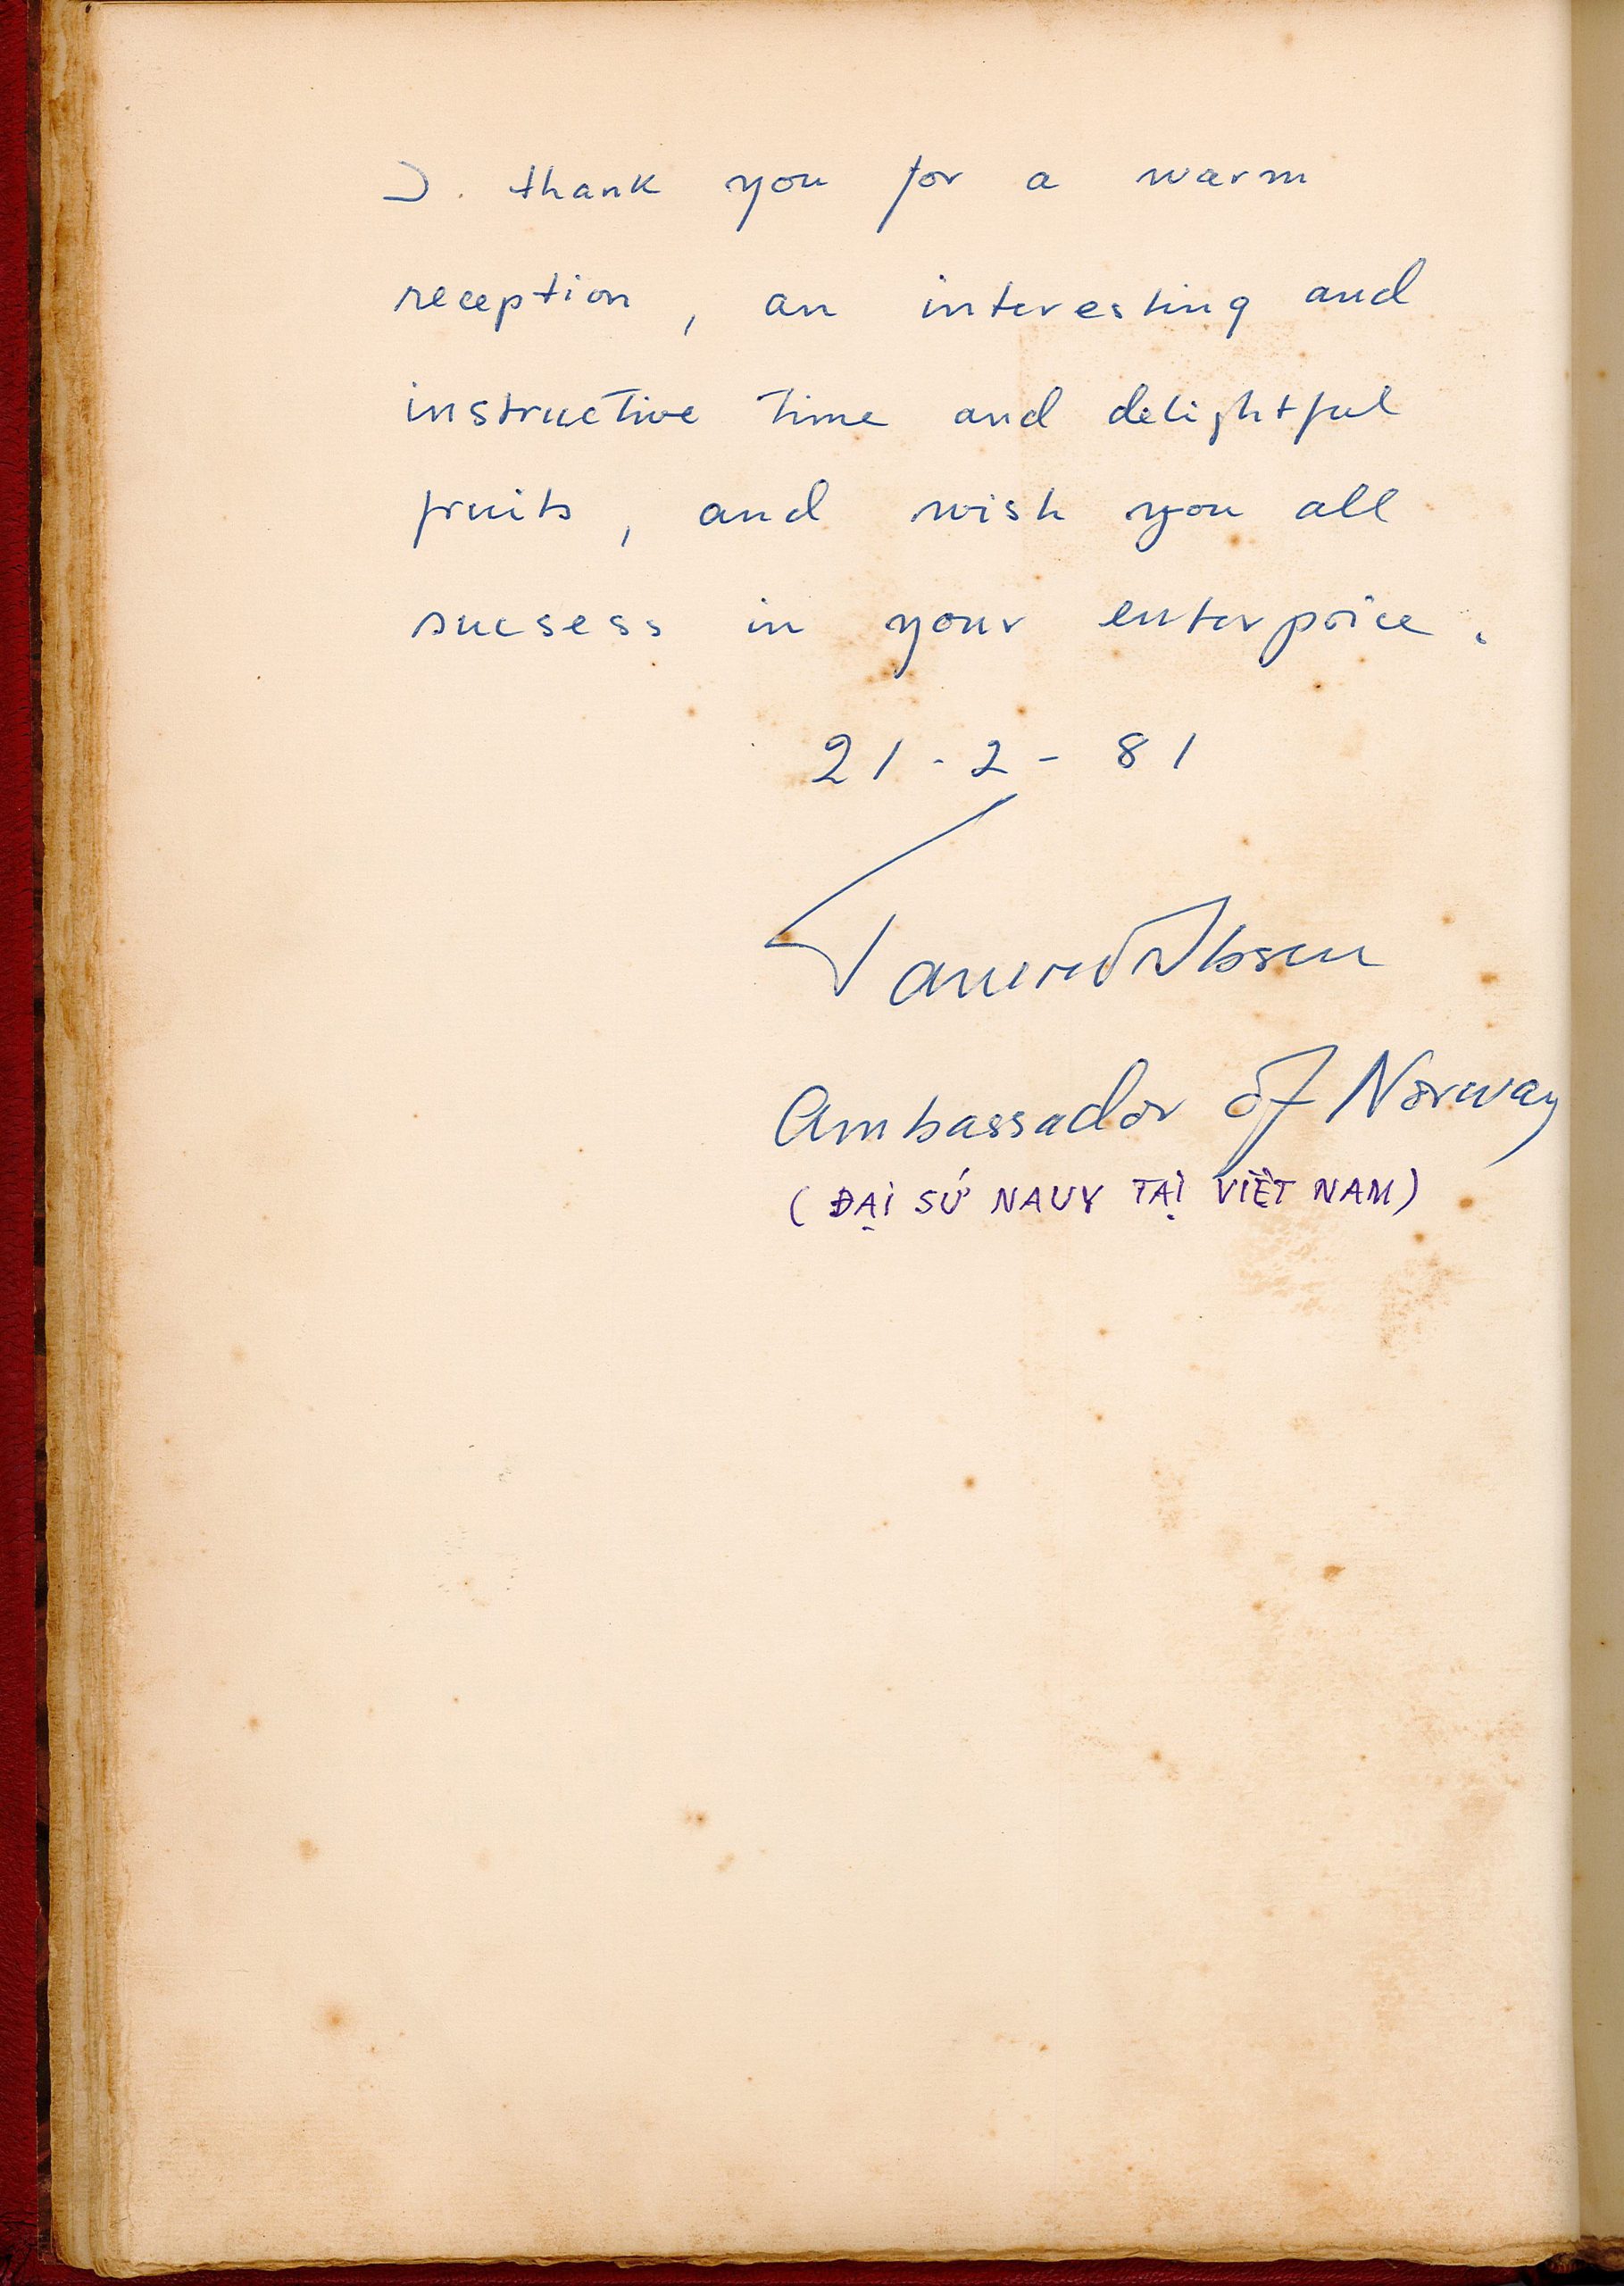 I thank you for a warm
reception, an interesting and
instructive time and delightful
fruits, and wish you all
sucsess in your enterprice.
21-2-81
Tancred Ibsen
Ambassador of Norway
(ĐẠI SỨ NAUY TẠI VIỆT NAM)